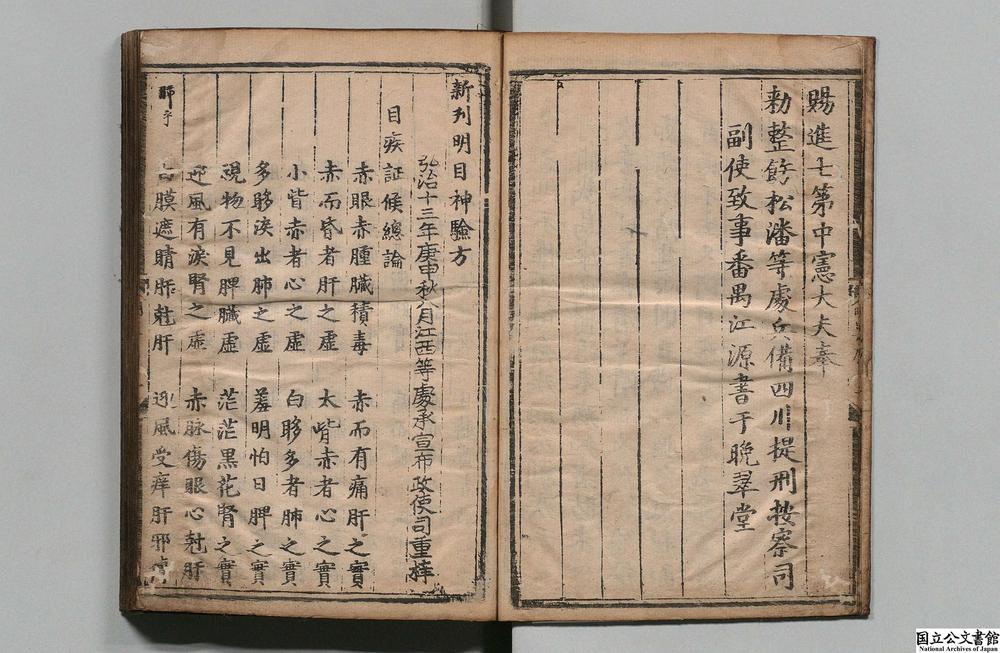 賜進士第中憲大夫奉
勑整飭松潘等處兵備四川提刑按察司
副使致事番禺江源書于晩翠堂
新刋明目神驗方
弘治十三年庚申秋八月江西等處承宣布政使司重梓
目疾証候總論
赤眼赤腫臟積毒 赤而有痛肝之實
赤而昏者肝之虛 太眥赤者心之實
小眥赤者心之虛 白眵多者肺之實
多眵淚出肺之虛 羞明怕日脾之實
視物不見脾臟虛 茫茫黑花腎之實
迎風有淚腎之虛 赤脉傷眼心尅肝
膜遮睛肺尅肝 迎風受痒肝邪
国立公文書館
National Archives of Japan